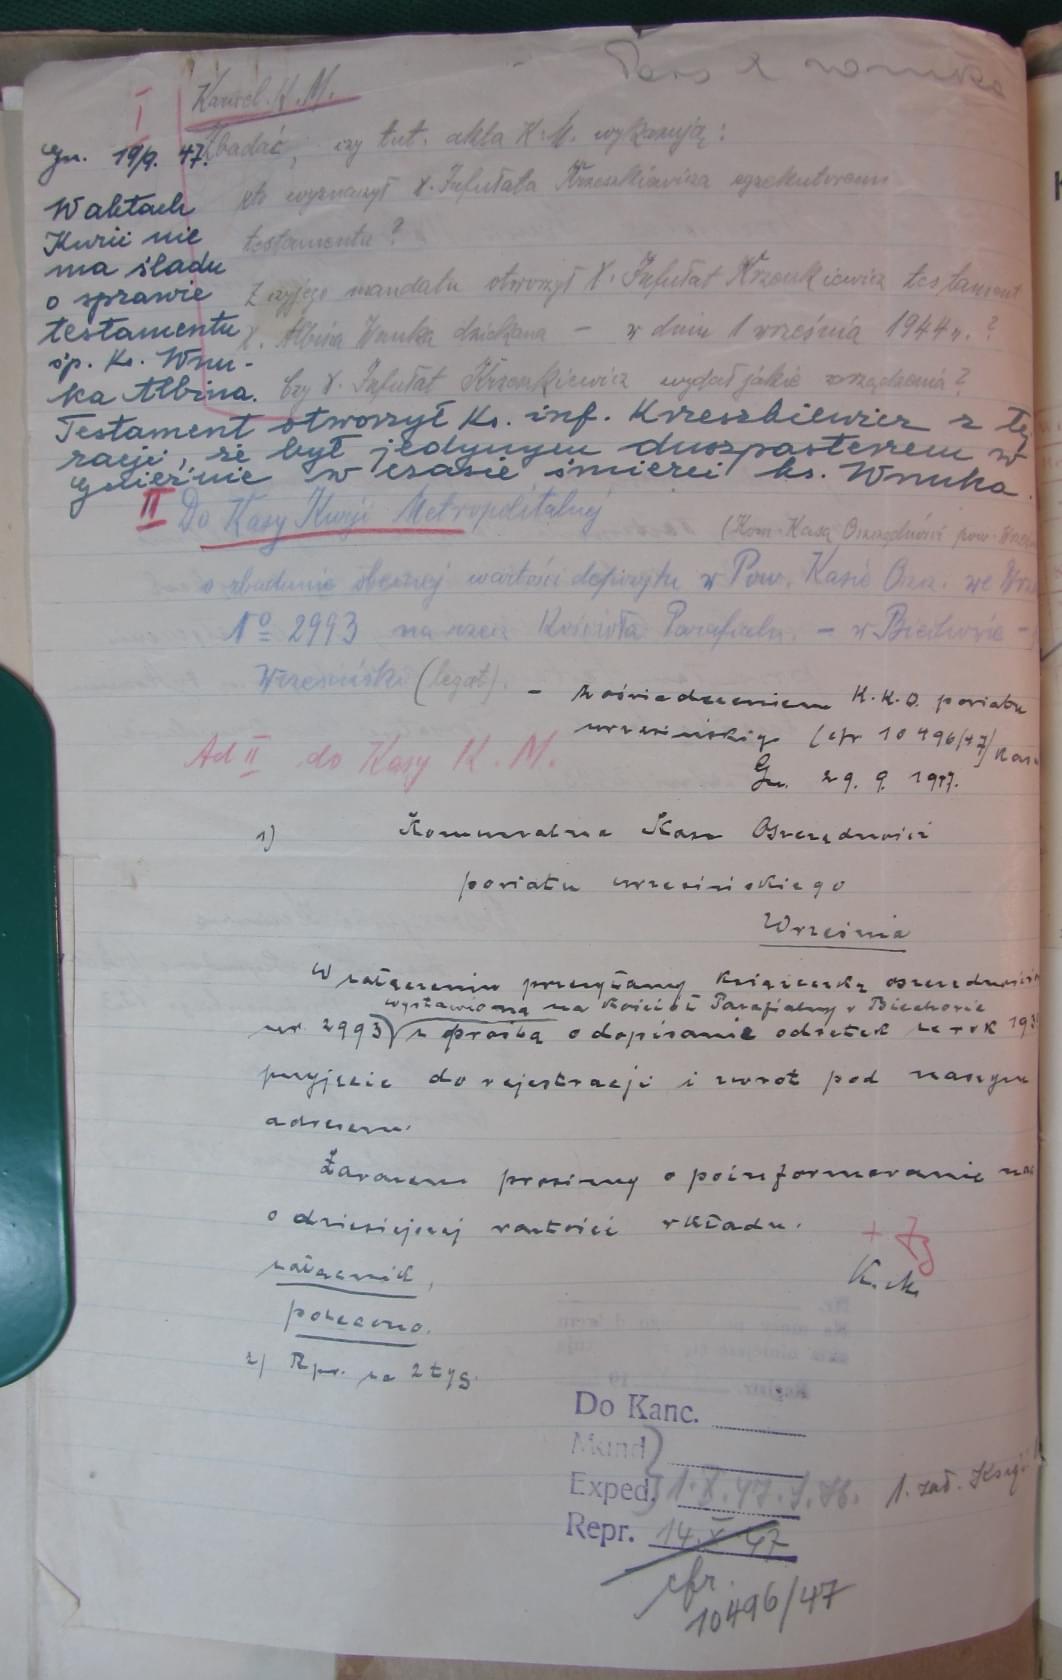 I Kancel. K. M.
Zbadać, czy tut. akta K. M. wykazują:
kto wyznaczył X. Infułata Krzeszkiewicza egzekutorem
testamentu?
Z czyjego mandatu otworzył X. Infułat Krzeszkiewicz testament
X. Albina Wnuka dziekana – w dniu 1 września 1944 r.?
Czy X. Infułat Krzeszkiewicz wydał jakie zarządzenia?
Gn. 19/9. 47.
W aktach
Kurii nie
ma śladu
o sprawie
testamentu
śp. ks. Wnu-
ka Albina.
Testament otworzył ks. inf. Krzeszkiewicz z tej
racji, że był jedynym duszpasterzem w
Gnieźnie w czasie śmierci ks. Wnuka.
II Do Kasy Kurji Metropolitalnej
(Kom. Kasą Oszczędności pow.
o zbadanie obecnej wartości depozytu w Pow. Kasie Oszcz. we
No 2993 na rzecz Kościoła Parafialn. – w Biechowie –
Wrzesiński (legat).
– z oświadczeniem K.K.O. powiatu
wrzesińskiego (cfr 10496/47)
Gn. 29. 9. 1947.
Ad II do Kasy K. M.
1) Komunalna Kasa Oszczędności
powiatu wrzesińskiego
Września
W załączeniu przesyłamy książeczkę oszczędności
wystawioną na Kościół Parafialny w Biechowie
nr. 2993 z prośbą o dopisanie odsetek za rok
przyjęcie do rejestracji i zwrot pod naszym
adresem.
Zarazem prosimy o poinformowanie nas
o dzisiejszej wartości wkładu.
załącznik,
polecono.
K. M.
2) Rpr. za 2 tyg.
Do Kanc.
Mund
Exped. 1.X.47.
1. zał.
Repr. 14.X 47
cfr.
10496/47